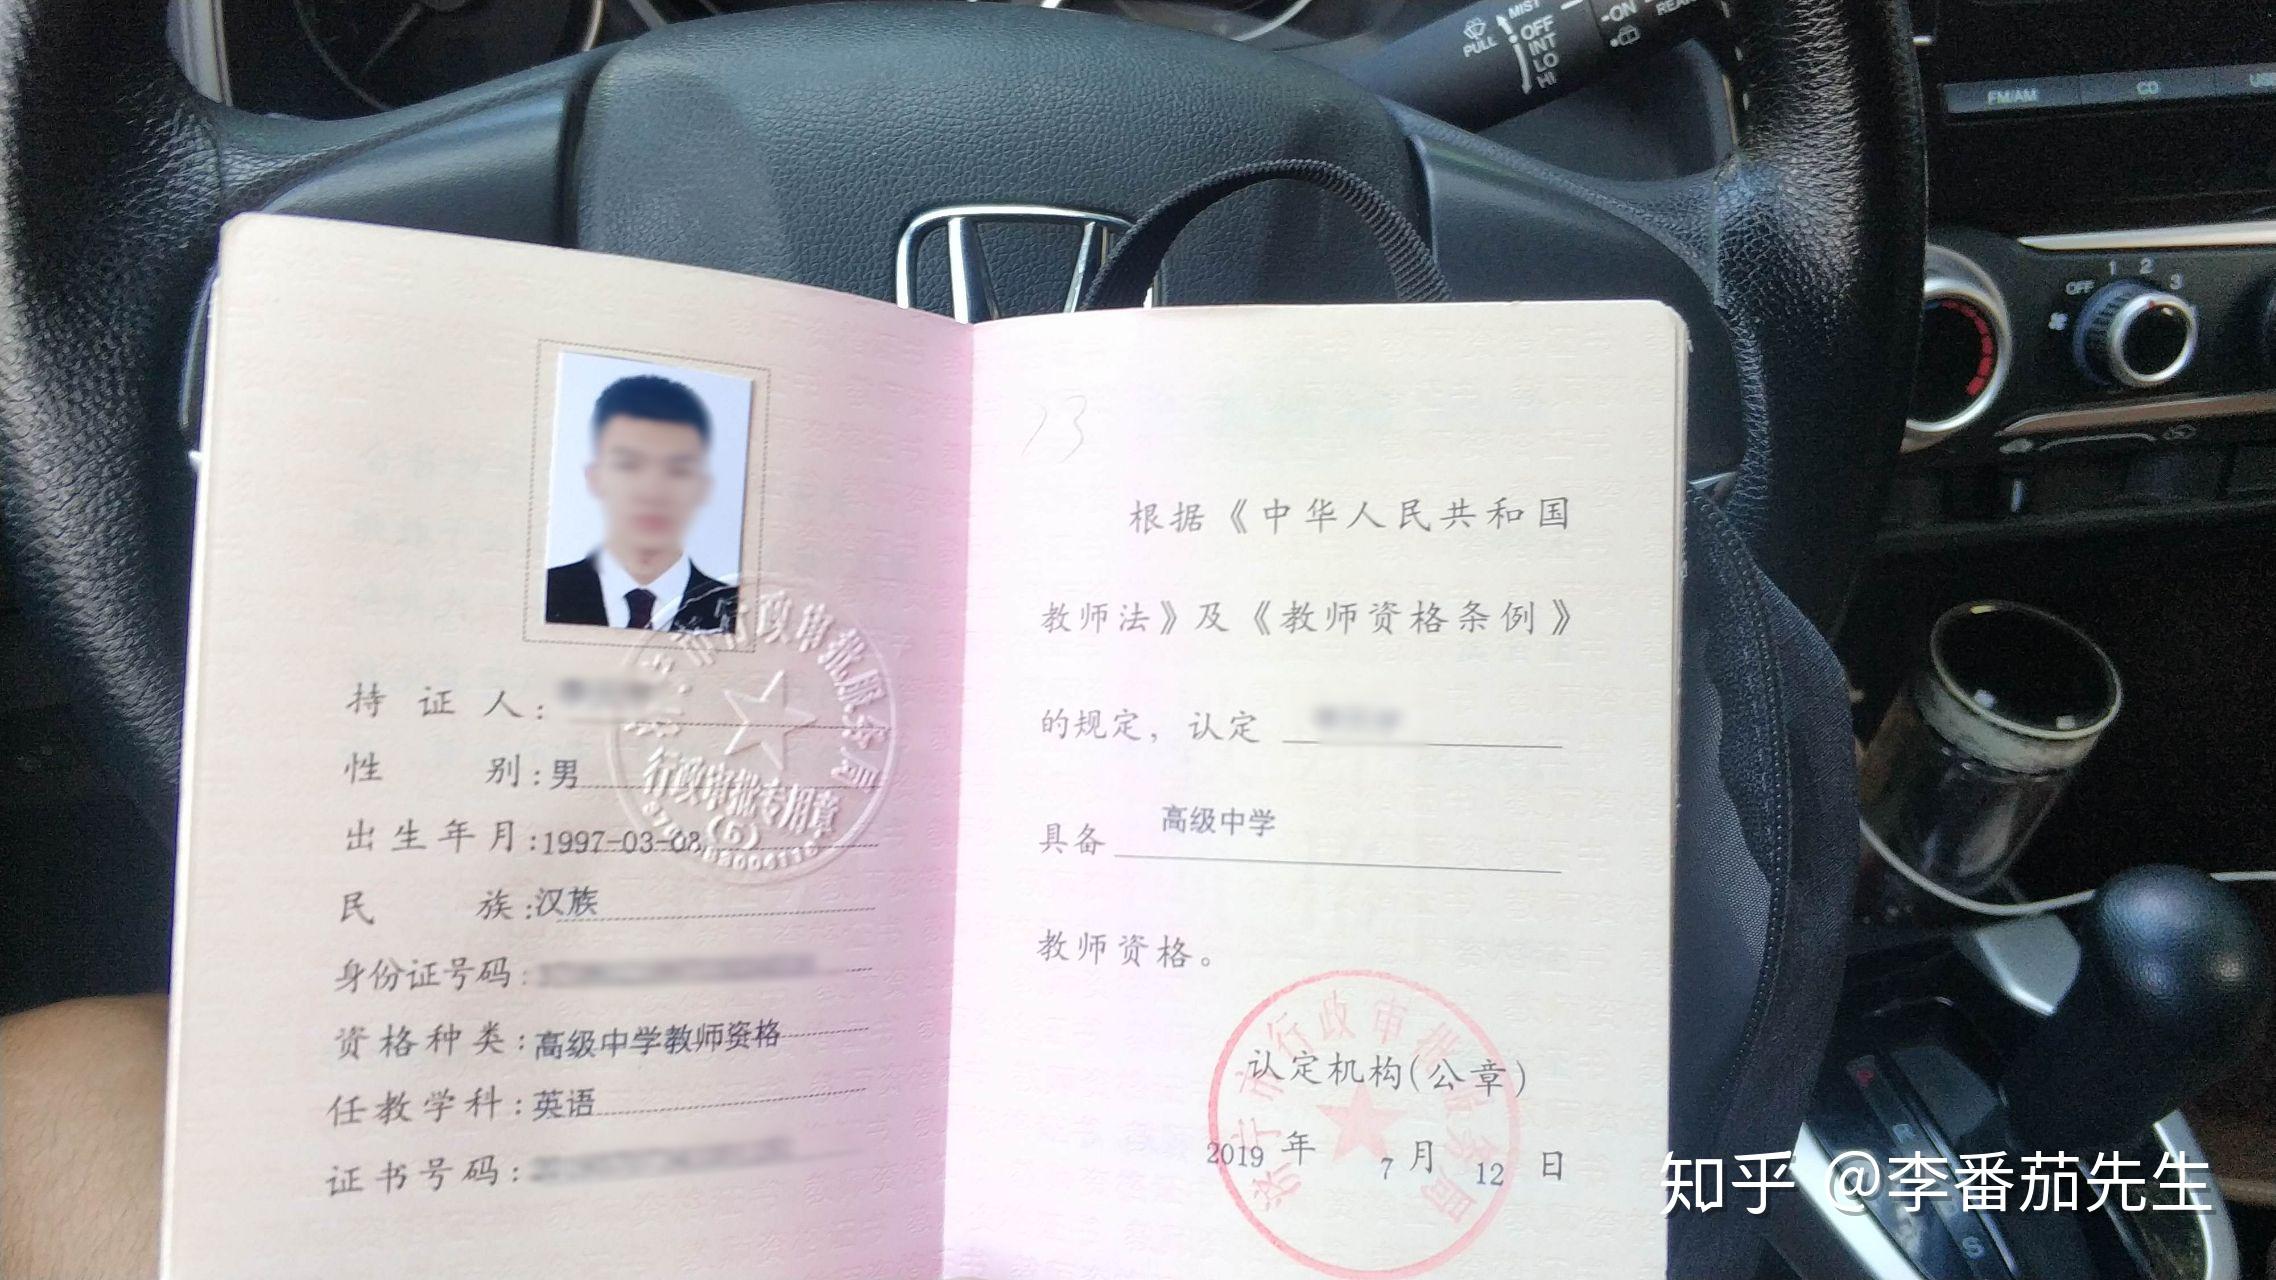 MIST
PULL
OFF
INT
LO
HI
ON
FM/AM
CD
OFF
1
2
3
13
持证人:
性别:男
出生年月:1997-03-08
民族:汉族
身份证号码:
资格种类:高级中学教师资格
任教学科:英语
证书号码:
行政审批服务局
行政审批专用章
根据《中华人民共和国
教师法》及《教师资格条例》
的规定，认定
具备 高级中学
教师资格。
济宁市行政审批服务局
认定机构(公章)
2019年7月12日
R
S
知乎 @李番茄先生